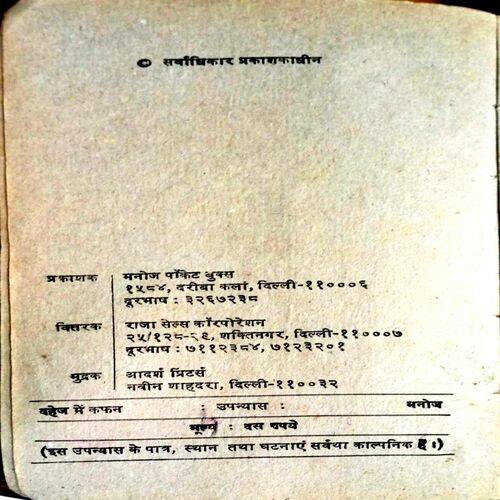 © सर्वाधिकार प्रकाशकाधीन
प्रकाशक मनोज पॉकेट बुक्स
१५८४, दरीबा कलां, दिल्ली-११०००६
दूरभाष : ३२६७२३८
वितरक राजा सेल्स कॉरपोरेशन
२५/१२८-२९, शक्तिनगर, दिल्ली-११०००७
दूरभाष : ७११२३८४, ७१२३२०१
मुद्रक आदर्श प्रिंटर्स
नवीन शाहदरा, दिल्ली-११००३२
दहेज में कफन : उपन्यास : मनोज
मूल्य : दस रुपये
(इस उपन्यास के पात्र, स्थान तथा घटनाएं सर्वथा काल्पनिक हैं।)